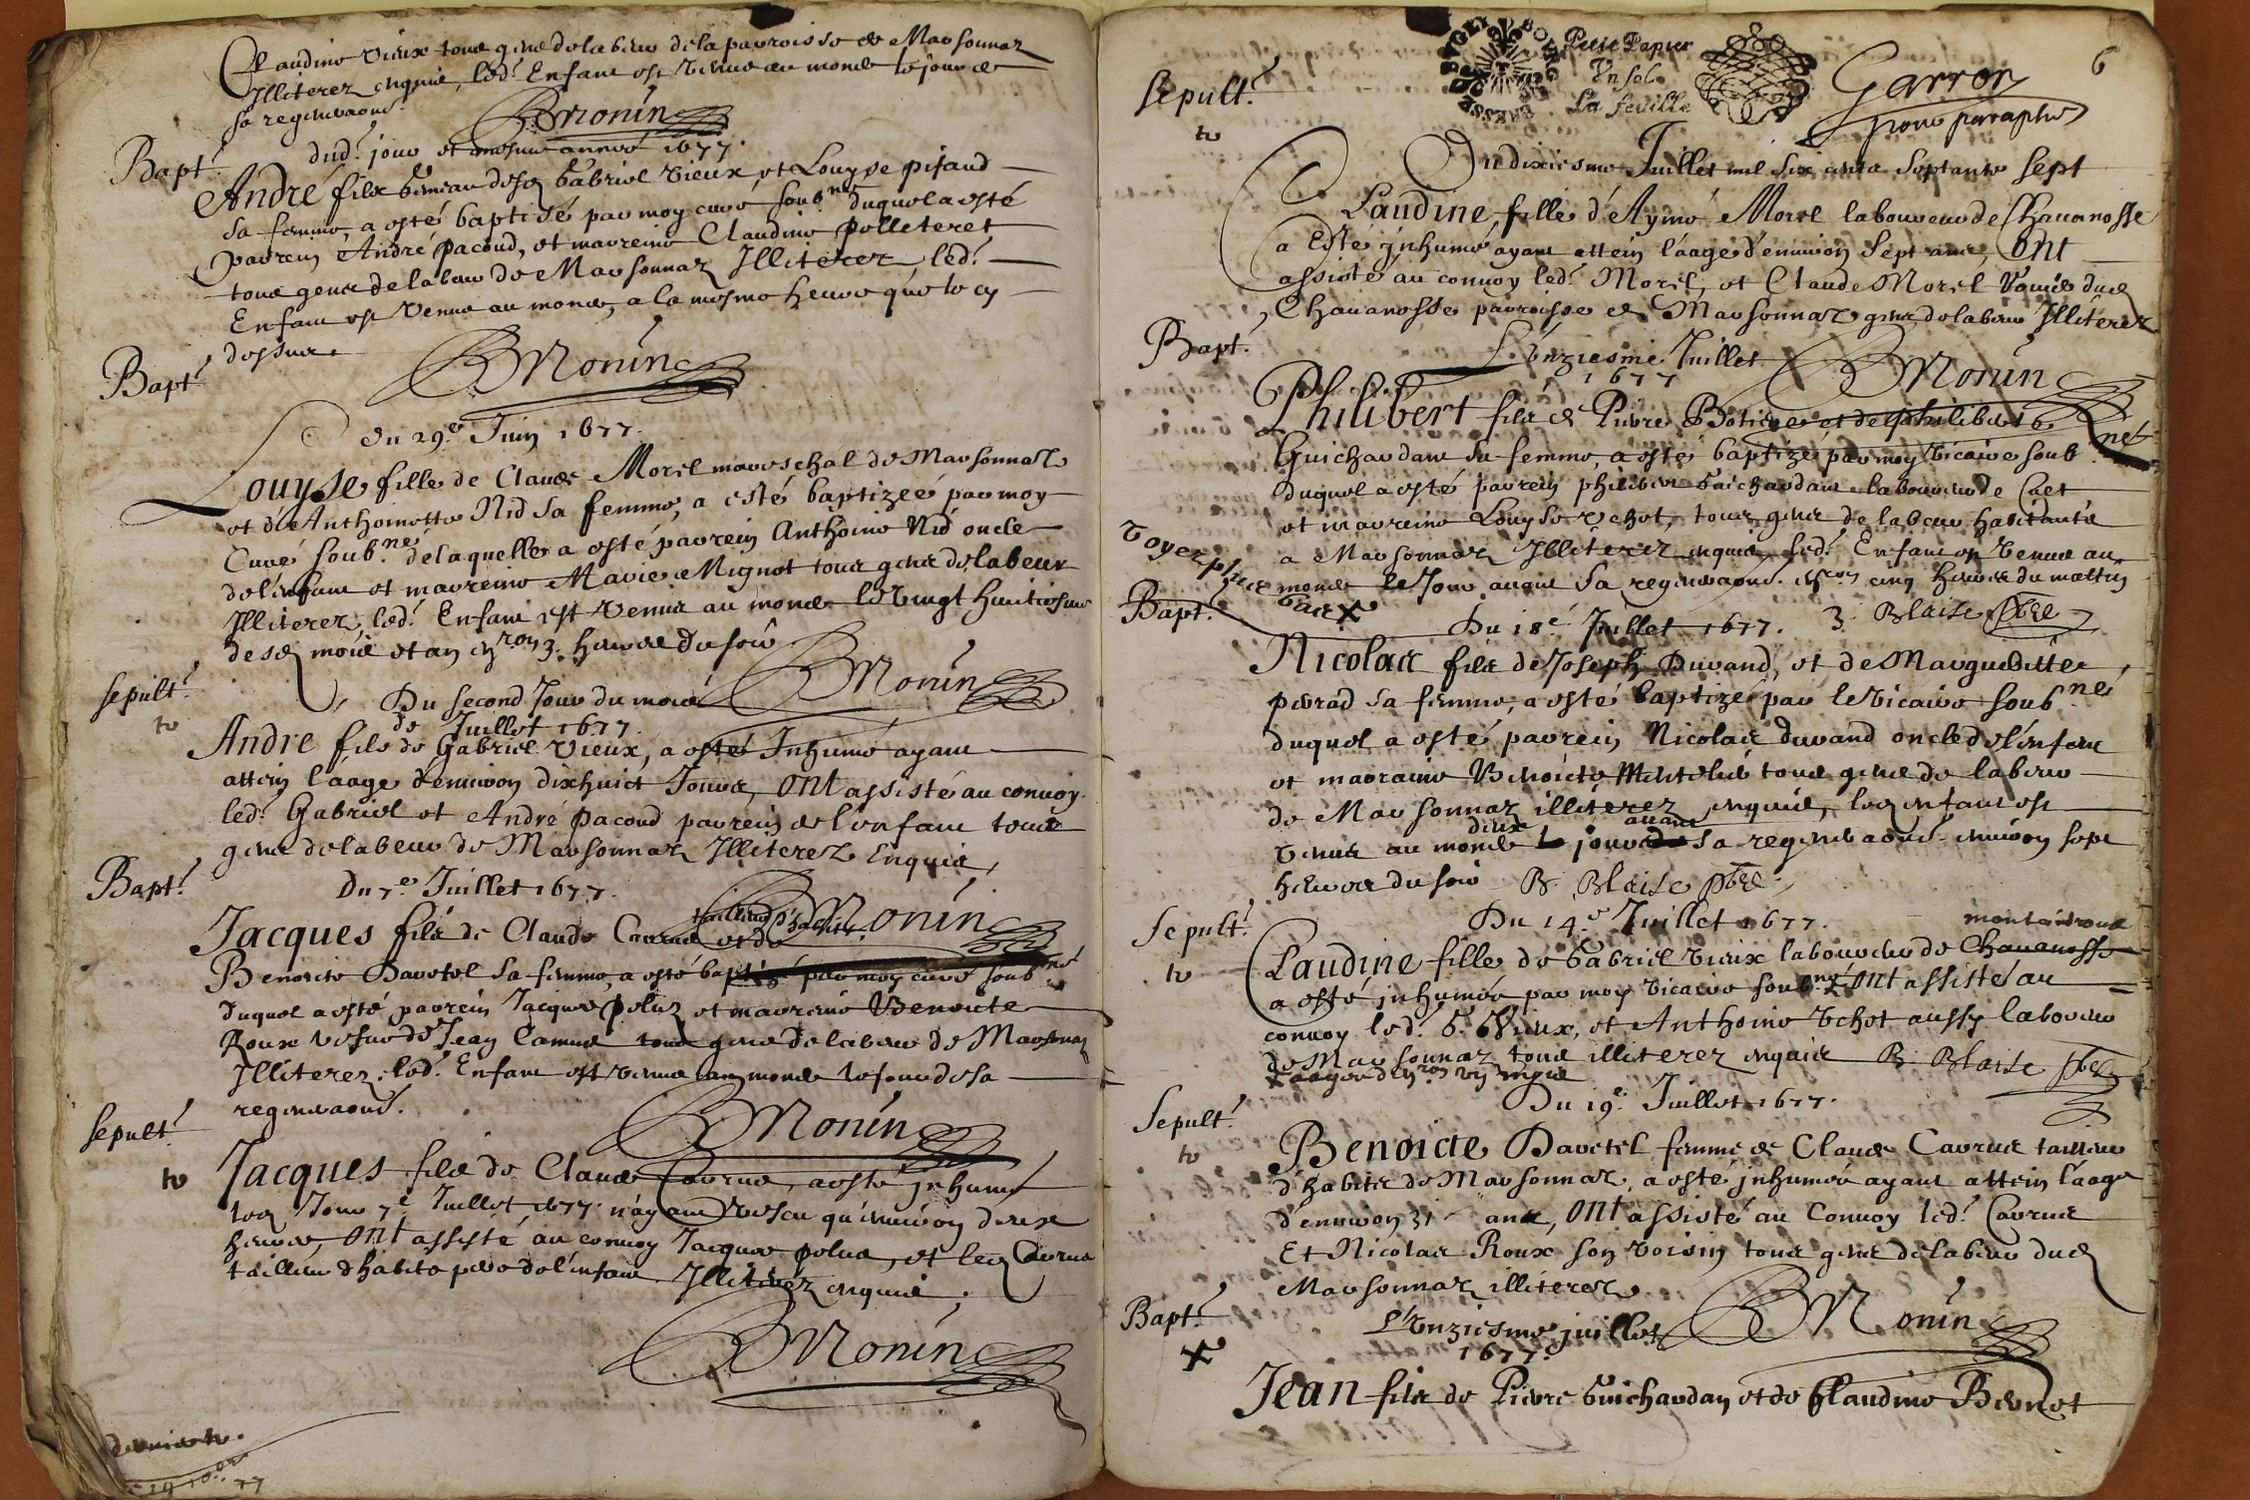 Claudine Vieux tous gens de labeur de la parroisse de Marsonnaz
Illiterez enquis, led.t Enfant est venu au monde le jour de
sa regeneraõn.
BMonin
Bapt.t
dud.t jour et mesme année 1677.
André fils bemeau de Gabriel Vieux, et Louyse pisaud
sa femme, a esté baptisé par moy curé soub.né duquel a esté
parrein André pacoud, et marreine Claudine polleteret
tous gens de labeur de Marsonnaz Illiterez, led.t
Enfant est venu au monde, a la mesme heure que le cy
dessus.
BMonin
Bapt.t
du 29.e Juin 1677.
Louyse fille de Claude Morel mareschal de Marsonnaz
et d'Anthoinette Nid sa femme, a esté baptizée par moy
Curé soub.né de laquelle a esté parrein Anthoine Nid oncle
de l'enfant et marreine Marie Mignot tous gens de labeur
Illiterez, led.t Enfant est venu au monde le vingt huitiesme
desd. mois et an envron 3. heures du soir
BMonin
Sepult.t
to
Du second Jour du mois
de Juillet 1677.
André fils de Gabriel Vieux, a esté Inhumé ayant
attein l'aage d'environ dixhuict Jours, ont assisté au convoy
led.t Gabriel et André pacoud parrein de l'enfant tous
gens de labeur de Marsonnaz Illiterez Enquis,
BMonin
Bapt.t
Du 7.e Juillet 1677.
Jacques fils de Claude Carrue tailleur d'habits et de
Benoite Davetel sa femme, a esté baptizé par moy curé soub.né
duquel a esté parrein Jacques polus et marreine Benoite
Roux vefve de Jean Camus tous gens de labeur de Marsonnaz
Illiterez, led.t Enfant est venu au monde le jour de sa
regeneraõn.
BMonin
Sepult.t
to
Jacques fils de Claude Carrue, a esté inhumé
led. Jour 7.e Juillet 1677. n'ayant vescu qu'environ deux
heures, ont assisté au convoy Jacques polus, et led. Carrue
tailleur d'habits pere de l'enfant Illiterez enquis.
BMonin
derniere.
19 10.bre 77
BOURG
Petit Papier
Un sol
La feuille
Garron
pour paraphe
6
Sepult.t
to
Du dixiesme Juillet mil six cents septante sept
Claudine fille d'Aymé Morel laboureur de Chavanosse
a Esté inhumé ayant attein l'aage d'environ sept ans, ont
assisté au convoy led.t Morel, et Claude Morel tous dud.
Chavanosse parroisse de Marsonnaz gens de labeur Illiterez
BMonin
Bapt.t
L'unziesme Juillet
1677
Philibert fils de Pierre Botier et de philiberte
Guichardant sa femme, a esté baptizé par moy vicaire soub.né
duquel a esté parrein philibert Guichardant laboureur de Cuet
et marreine Louyse Vehot, tous gens de labeur habitants
a Marsonnaz Illiterez enquis, led.t Enfant est venu au
monde le Jour avant sa regeneraõn. environ cinq heures du mattin
B. Blaise pbre
Voyez plus
bas X
Bapt.t
Du 18.e Juillet 1677.
Nicolas fils de Joseph Durand, et de Marguerittee
perrad sa femme, a esté baptizé par le vicaire soub.né
duquel a esté parrein Nicolas durand oncle de l'enfant
et marraine Benoicte Mentelier tous gens de labeur
de Marsonnaz illiterez enquis, led. enfant est
venu au monde deux jours avant sa regeneraõn. environ sept
heures du soir B. Blaise pbre
Sepult.t
to
Du 14.e Juillet 1677.
Claudine fille de Gabriel Vieux laboureur de Chavanosse
a esté inhumée par moy vicaire soub.né ont assisté au
convoy led.t G. Vieux, et Anthoine Vehot aussy laboureur
de Marsonnaz tous illiterez enquis B. Blaise pbre
Sepult.t
to
Du 19.e Juillet 1677.
Benoicte Davetel femme de Claude Carrue tailleur
d'habits de Marsonnaz, a esté inhumée ayant attein l'aage
d'environ 31 ans, ont assisté au Convoy led.t Carrue
Et Nicolas Roux son voisin tous gens de labeur dud.
Marsonnaz illiterez
BMonin
Bapt.t
X
L'unziesme juillet
1677.
Jean fils de Pierre Guichardan et de Claudine Bernot